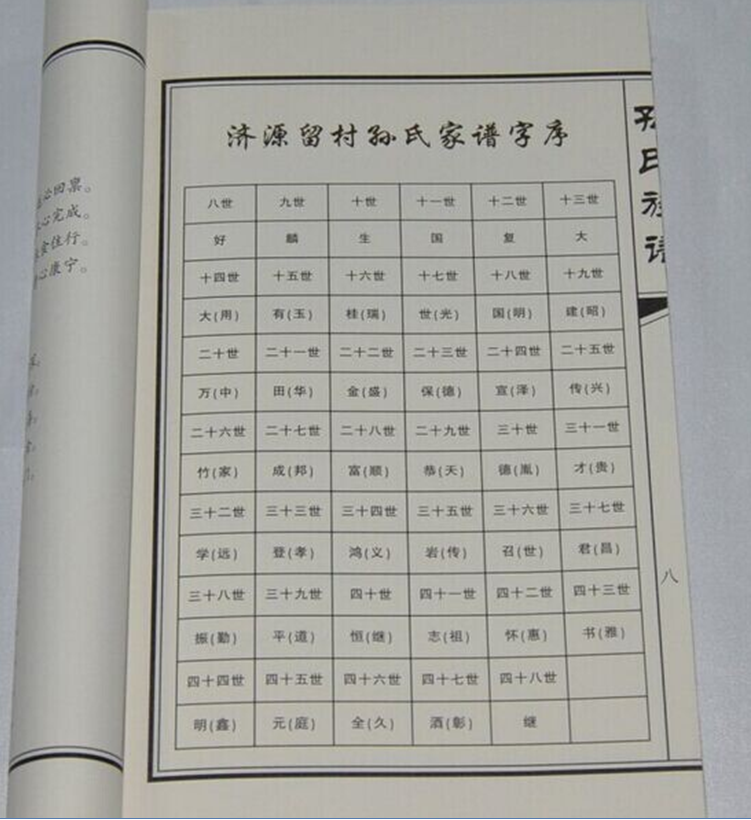 济源留村孙氏家谱字序
八世 九世 十世 十一世 十二世 十三世
好 麟 生 国 复 大
十四世 十五世 十六世 十七世 十八世 十九世
大(用) 有(玉) 桂(瑞) 世(光) 国(明) 建(昭)
二十世 二十一世 二十二世 二十三世 二十四世 二十五世
万(中) 田(华) 金(盛) 保(德) 宣(泽) 传(兴)
二十六世 二十七世 二十八世 二十九世 三十世 三十一世
竹(家) 成(邦) 富(顺) 恭(天) 德(胤) 才(贵)
三十二世 三十三世 三十四世 三十五世 三十六世 三十七世
学(远) 登(孝) 鸿(义) 岩(传) 召(世) 君(昌)
三十八世 三十九世 四十世 四十一世 四十二世 四十三世
振(勤) 平(道) 恒(继) 志(祖) 怀(惠) 书(雅)
四十四世 四十五世 四十六世 四十七世 四十八世
明(鑫) 元(庭) 全(久) 酒(彰) 继
孙氏族谱
八
心回禀。
心完成。
食住行。
心康宁。